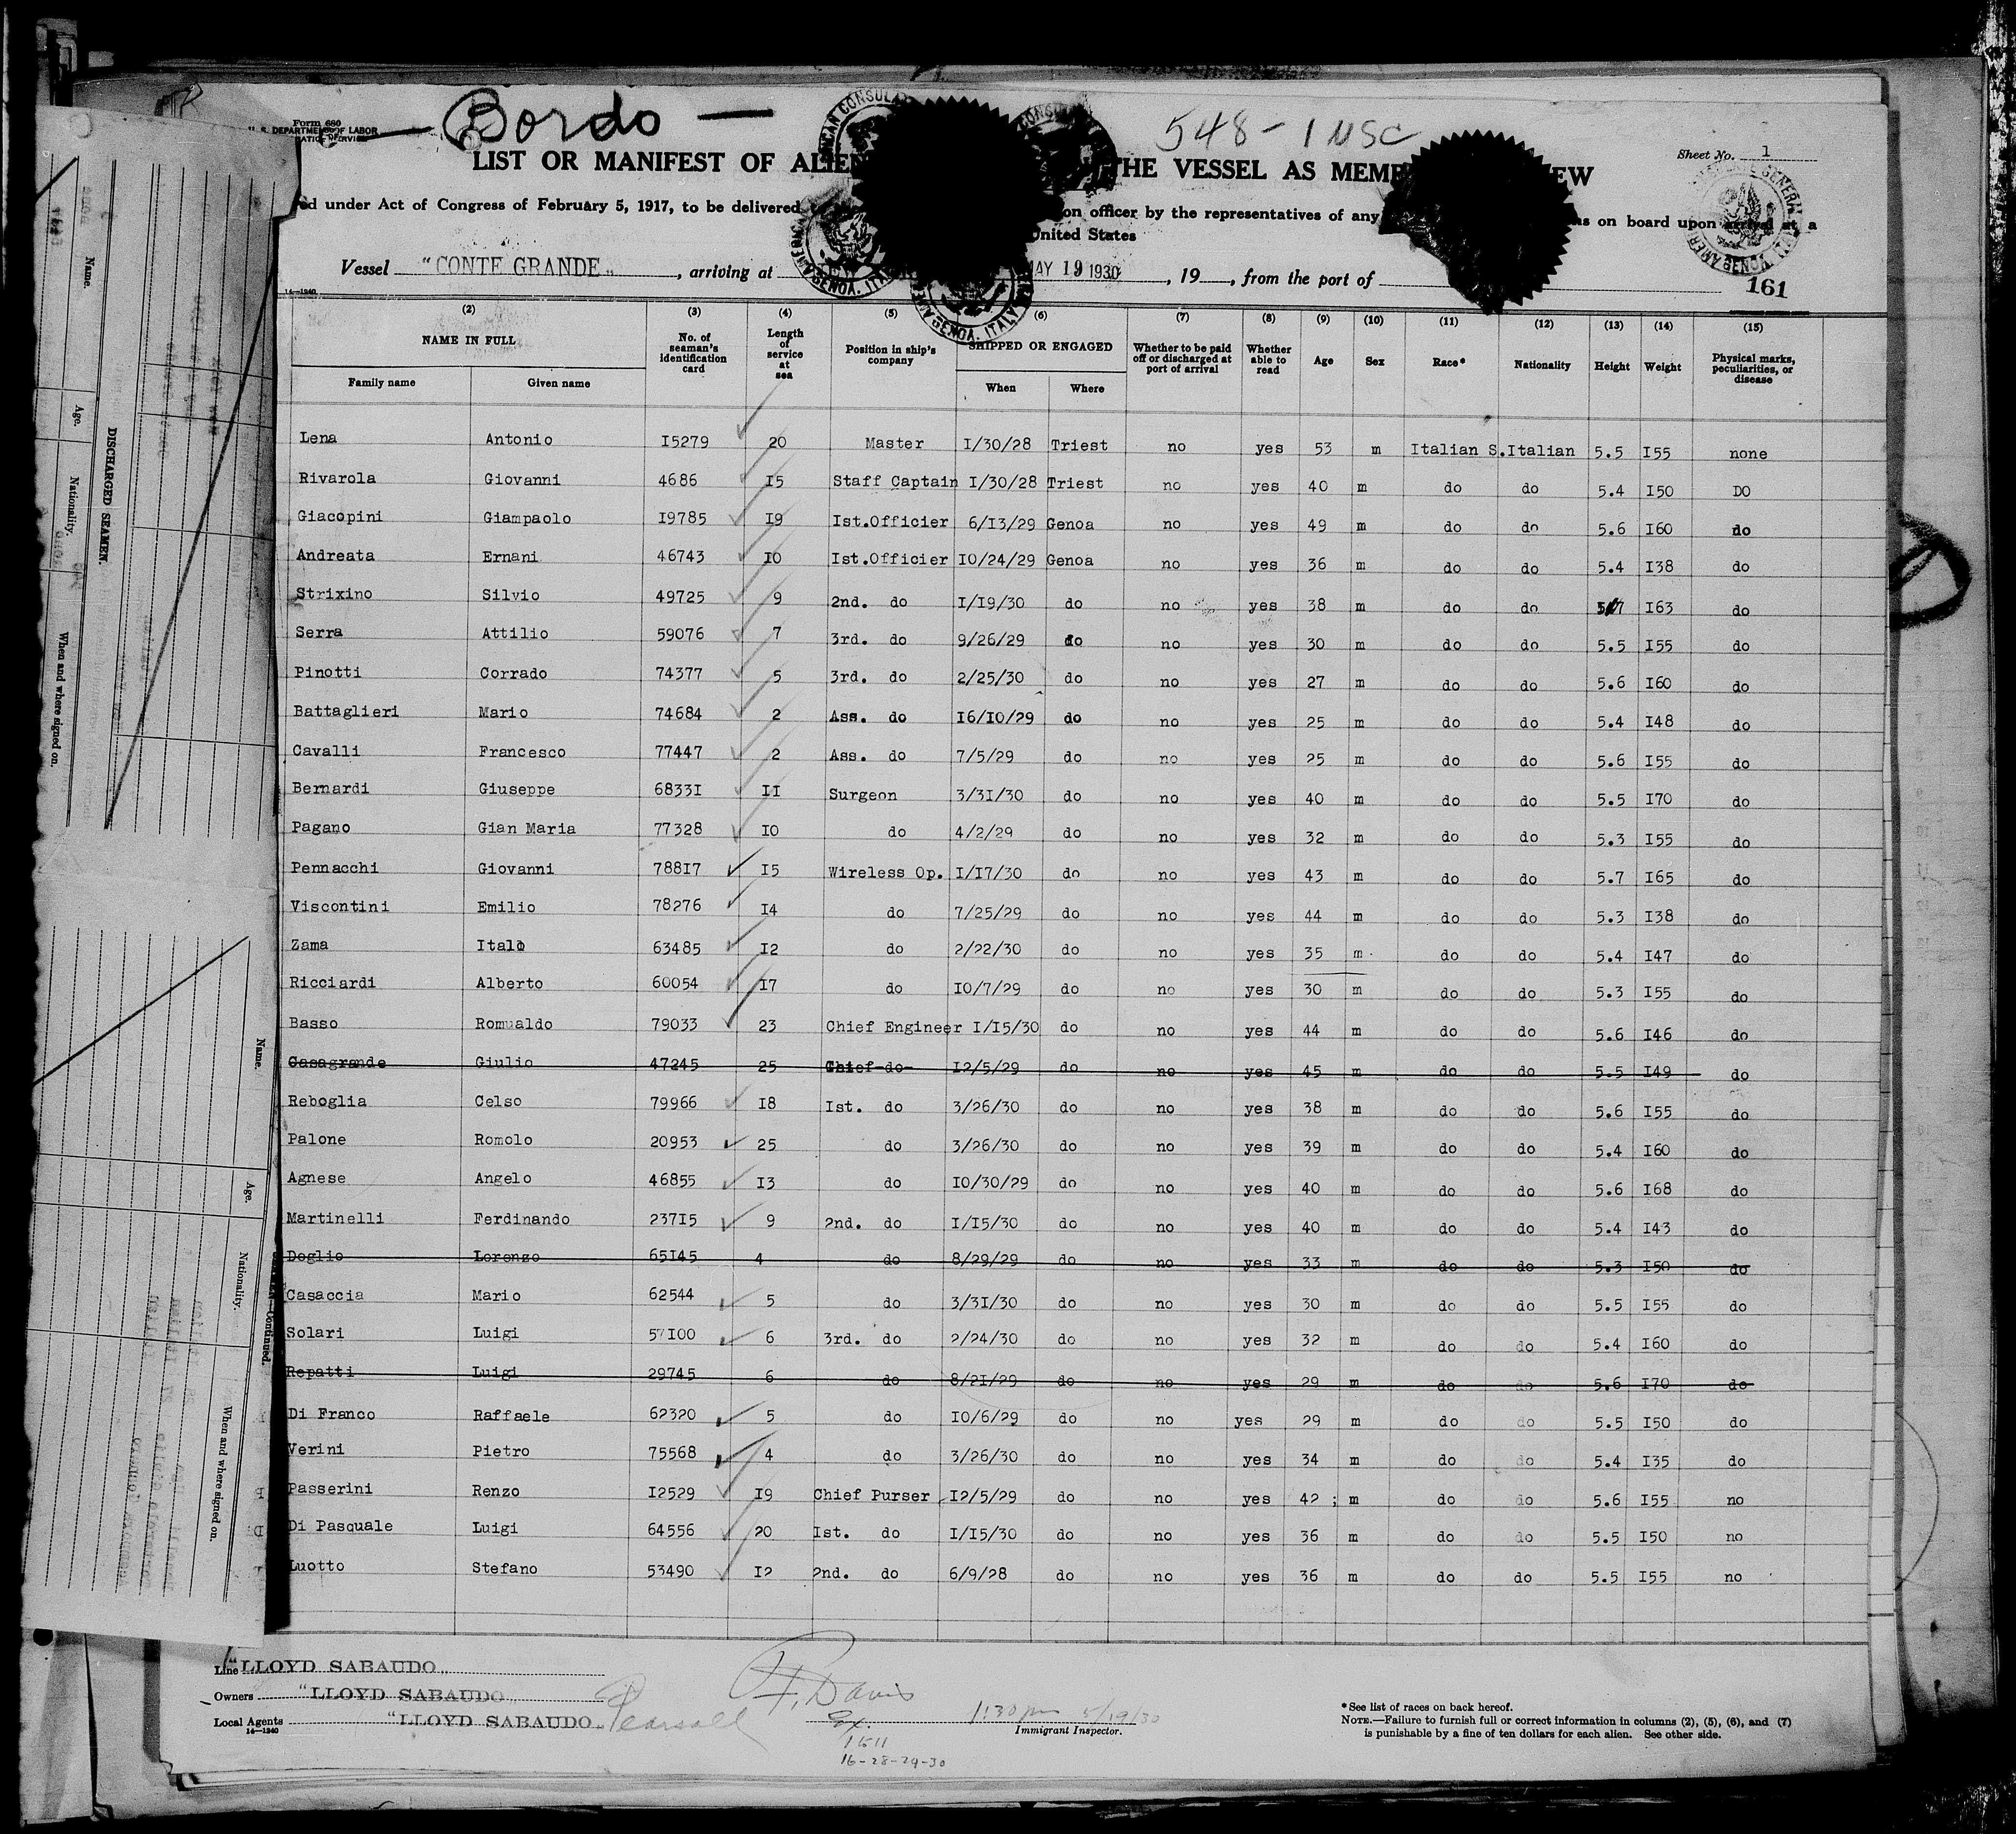 Form 680
U. S. DEPARTMENT OF LABOR
Bordo —
548 - 1 USC
Sheet No. 1
LIST OR MANIFEST OF ALIEN THE VESSEL AS MEMB EW
under Act of Congress of February 5, 1917, to be delivered on officer by the representatives of any on board upon arrival at a
United States
Vessel "CONTE GRANDE", arriving at MAY 19 1930, 19 , from the port of
14—1240
161
(2) (3) (4) (5) (6) (7) (8) (9) (10) (11) (12) (13) (14) (15)
NAME IN FULL No. of seaman's identification card Length of service at sea Position in ship's company SHIPPED OR ENGAGED Whether to be paid off or discharged at port of arrival Whether able to read Age Sex Race* Nationality Height Weight Physical marks, peculiarities, or disease
Family name Given name When Where
Lena Antonio I5279 20 Master I/30/28 Triest no yes 53 m Italian S. Italian 5.5 I55 none
Rivarola Giovanni 4686 I5 Staff Captain I/30/28 Triest no yes 40 m do do 5.4 I50 DO
Giacopini Giampaolo I9785 I9 Ist.Officier 6/I3/29 Genoa no yes 49 m do do 5.6 I60 do
Andreata Ernani 46743 IO Ist.Officier IO/24/29 Genoa no yes 36 m do do 5.4 I38 do
Strixino Silvio 49725 9 2nd. do I/I9/30 do no yes 38 m do do 5.7 I63 do
Serra Attilio 59076 7 3rd. do 9/26/29 do no yes 30 m do do 5.5 I55 do
Pinotti Corrado 74377 5 3rd. do 2/25/30 do no yes 27 m do do 5.6 I60 do
Battaglieri Mario 74684 2 Ass. do I6/IO/29 do no yes 25 m do do 5.4 I48 do
Cavalli Francesco 77447 2 Ass. do 7/5/29 do no yes 25 m do do 5.6 I55 do
Bernardi Giuseppe 6833I II Surgeon 3/3I/30 do no yes 40 m do do 5.5 I70 do
Pagano Gian Maria 77328 IO do 4/2/29 do no yes 32 m do do 5.3 I55 do
Pennacchi Giovanni 788I7 I5 Wireless Op. I/I7/30 do no yes 43 m do do 5.7 I65 do
Viscontini Emilio 78276 I4 do 7/25/29 do no yes 44 m do do 5.3 I38 do
Zama Italo 63485 I2 do 2/22/30 do no yes 35 m do do 5.4 I47 do
Ricciardi Alberto 60054 I7 do IO/7/29 do no yes 30 m do do 5.3 I55 do
Basso Romualdo 79033 23 Chief Engineer I/I5/30 do no yes 44 m do do 5.6 I46 do
Casagrande Giulio 47245 25 Chief do I2/5/29 do no yes 45 m do do 5.5 I49 do
Reboglia Celso 79966 I8 Ist. do 3/26/30 do no yes 38 m do do 5.6 I55 do
Palone Romolo 20953 25 do 3/26/30 do no yes 39 m do do 5.4 I60 do
Agnese Angelo 46855 I3 do IO/30/29 do no yes 40 m do do 5.6 I68 do
Martinelli Ferdinando 237I5 9 2nd. do I/I5/30 do no yes 40 m do do 5.4 I43 do
Doglio Lorenzo 65I45 4 do 8/29/29 do no yes 33 m do do 5.3 I50 do
Casaccia Mario 62544 5 do 3/3I/30 do no yes 30 m do do 5.5 I55 do
Solari Luigi 57I00 6 3rd. do 2/24/30 do no yes 32 m do do 5.4 I60 do
Repatti Luigi 29745 6 do 8/2I/29 do no yes 29 m do do 5.6 I70 do
Di Franco Raffaele 62320 5 do IO/6/29 do no yes 29 m do do 5.5 I50 do
Verini Pietro 75568 4 do 3/26/30 do no yes 34 m do do 5.4 I35 do
Passerini Renzo I2529 I9 Chief Purser I2/5/29 do no yes 42 ; m do do 5.6 I55 no
Di Pasquale Luigi 64556 20 Ist. do I/I5/30 do no yes 36 m do do 5.5 I50 no
Luotto Stefano 53490 I2 2nd. do 6/9/28 do no yes 36 m do do 5.5 I55 no
Line "LLOYD SABAUDO"
Owners "LLOYD SABAUDO"
Local Agents "LLOYD SABAUDO"
14—1240
Pearsall
Davis
1:30 pm 5/19/30
Immigrant Inspector.
1511
16-28-29-30
*See list of races on back hereof.
NOTE.—Failure to furnish full or correct information in columns (2), (5), (6), and (7)
is punishable by a fine of ten dollars for each alien. See other side.
DISCHARGED SEAMEN.
Name. Age. Nationality. When and where signed on.
Continued.
Name. Age. Nationality. When and where signed on.